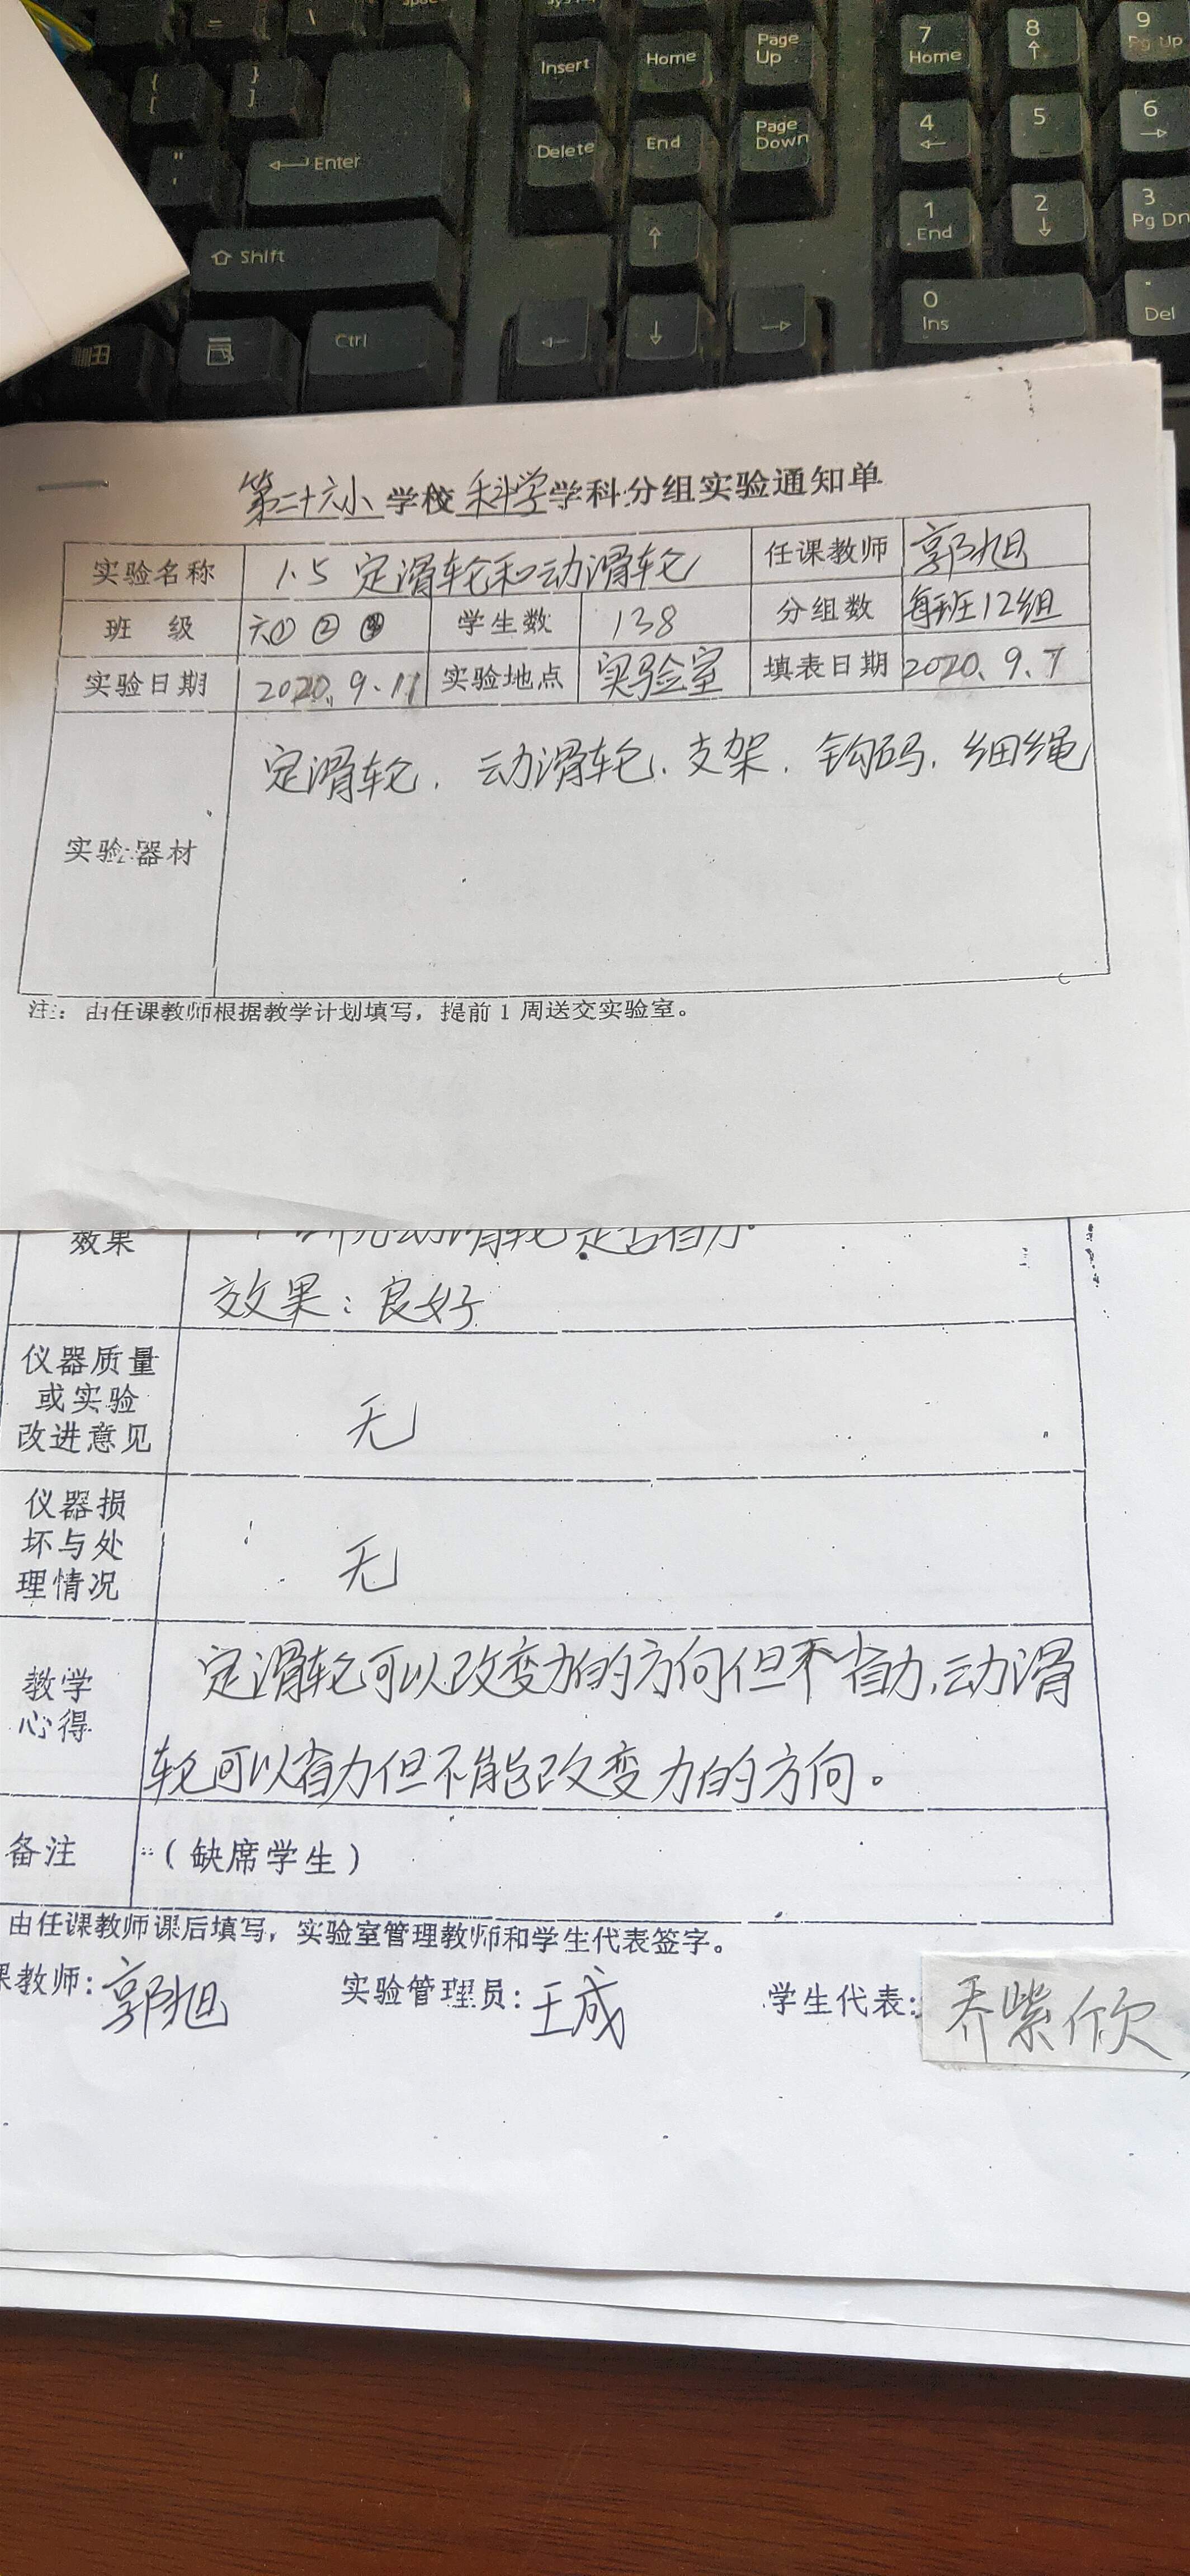 Insert Home Page Up 7 Home 8 9 Pg Up
} ]
{ [
Delete End Page Down 4 5 6
" '
Enter
1 End 2 3 Pg Dn
Shift
0 Ins . Del
Ctrl
第二十六小学校科学学科分组实验通知单
实验名称 1.5 定滑轮和动滑轮 任课教师 郭旭
班 级 六① ② 学生数 138 分组数 每班12组
实验日期 2020.9.11 实验地点 实验室 填表日期 2020.9.7
定滑轮. 动滑轮. 支架. 钩码. 细绳
实验器材
注: 由任课教师根据教学计划填写，提前 1 周送交实验室。
效果 动滑轮是否省力.
效果：良好
仪器质量
或实验
改进意见
无
仪器损
坏与处
理情况
无
教学
心得
定滑轮可以改变力的方向但不省力,动滑
轮可以省力但不能改变力的方向。
备注 （缺席学生）
由任课教师课后填写，实验室管理教师和学生代表签字。
课教师: 郭旭 实验管理员: 王成 学生代表: 乔紫欣